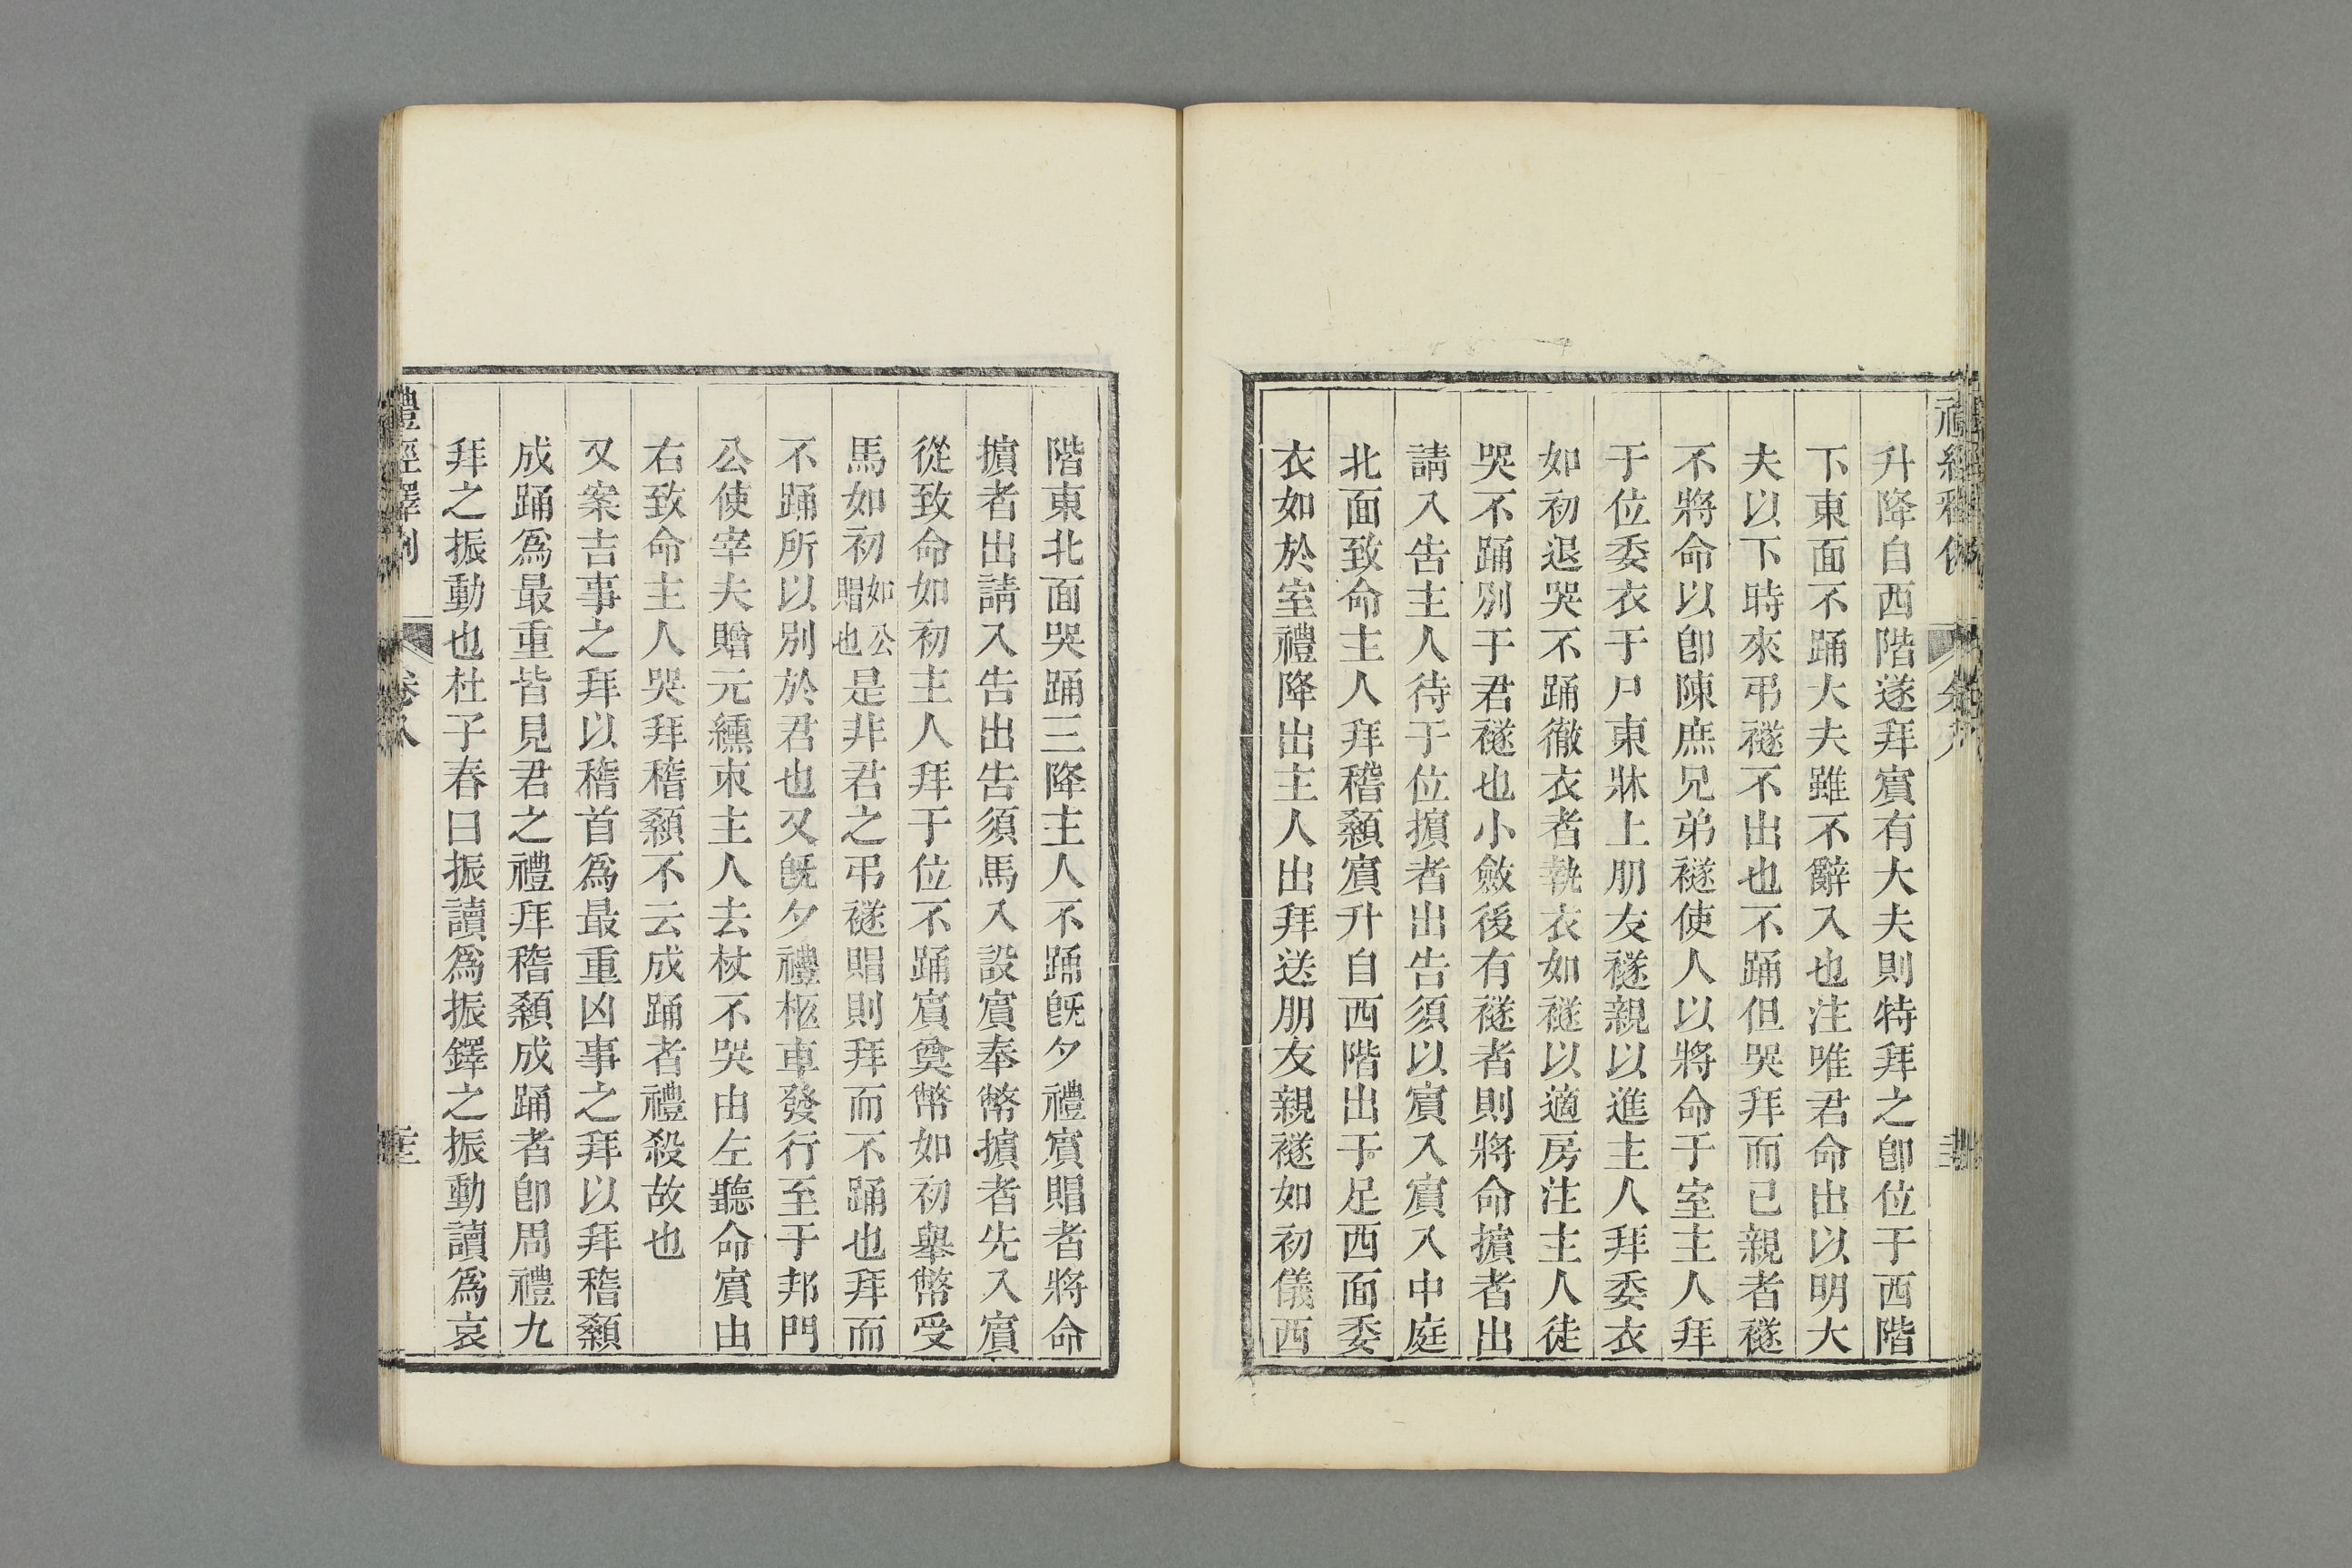 升降自西階遂拜賓有大夫則特拜之卽位于西階
下東面不踊大夫雖不辭入也注唯君命出以明大
夫以下時來弔襚不出也不踊但哭拜而已親者襚
不將命以卽陳庶兄弟襚使人以將命于室主人拜
于位委衣于尸東牀上朋友襚親以進主人拜委衣
如初退哭不踊徹衣者執衣如襚以適房注主人徒
哭不踊別于君襚也小斂後有襚者則將命擯者出
請入告主人待于位擯者出告須以賓入賓入中庭
北面致命主人拜稽顙賓升自西階出于足西面委
衣如於室禮降出主人出拜送朋友親襚如初儀西
階東北面哭踊三降主人不踊旣夕禮賓賵者將命
擯者出請入告出告須馬入設賓奉幣擯者先入賓
從致命如初主人拜于位不踊賓奠幣如初舉幣受
馬如初如公賵也是非君之弔襚賵則拜而不踊也拜而
不踊所以別於君也又旣夕禮柩車發行至于邦門
公使宰夫贈元纁束主人去杖不哭由左聽命賓由
右致命主人哭拜稽顙不云成踊者禮殺故也
又案吉事之拜以稽首爲最重凶事之拜以拜稽顙
成踊爲最重皆見君之禮拜稽顙成踊者卽周禮九
拜之振動也杜子春曰振讀爲振鐸之振動讀爲哀
禮經釋例 卷八